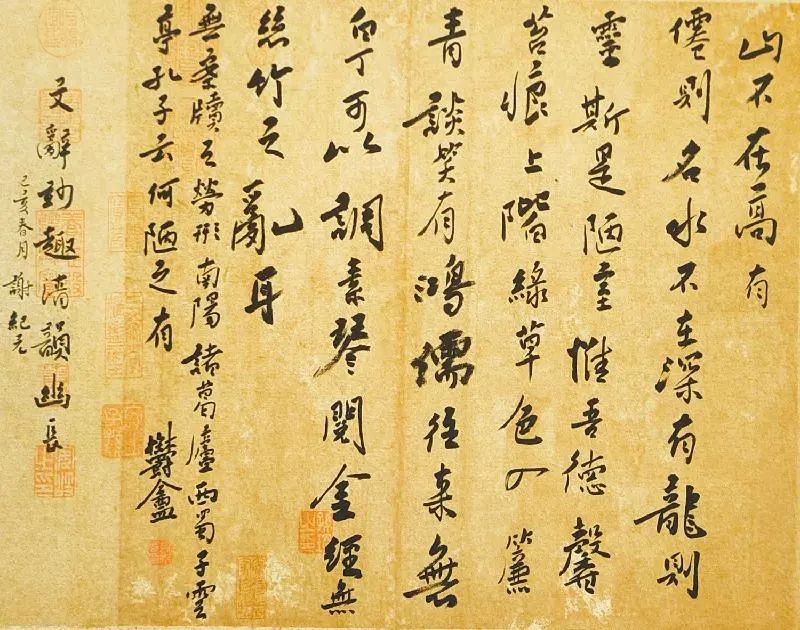 山不在高有
僊則名水不在深有龍則
靈斯是陋室惟吾德馨
苔痕上階綠草色入簾
青談笑有鴻儒往來無
白丁可以調素琴閱金經無
絲竹之亂耳
無案牘之勞形南陽諸葛廬西蜀子雲
亭孔子云何陋之有
鬱盦
文辭妙趣清韻幽長
己亥春月 謝紀元